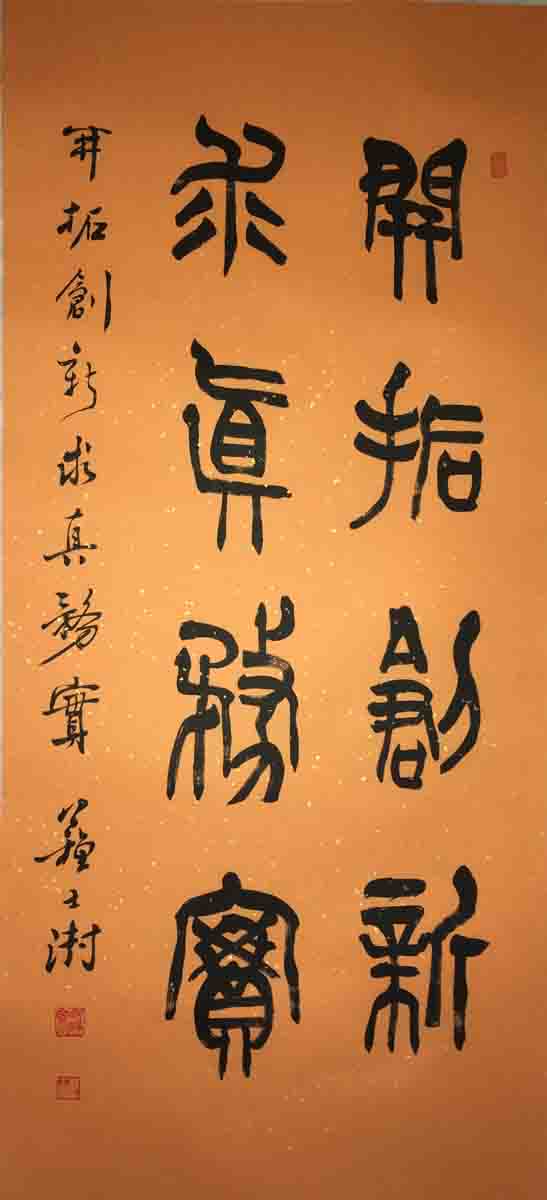 開拓創新
求真務實
開拓創新求真務實 蘇士澍